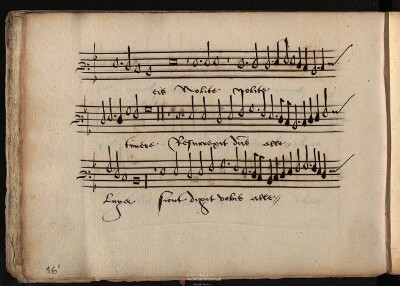 eis Nolite Nolite
timere Resurrexit dns alle
Luya sicut dixit vobis alle
16